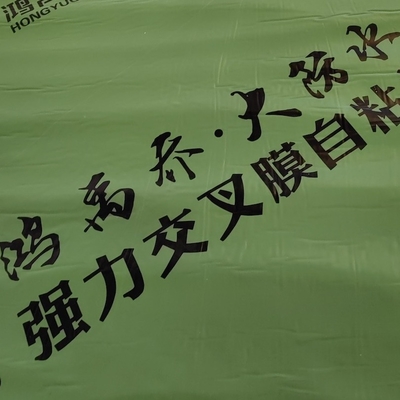 鸿
HONGYU
鸿禹乔·大防水
强力交叉膜自粘